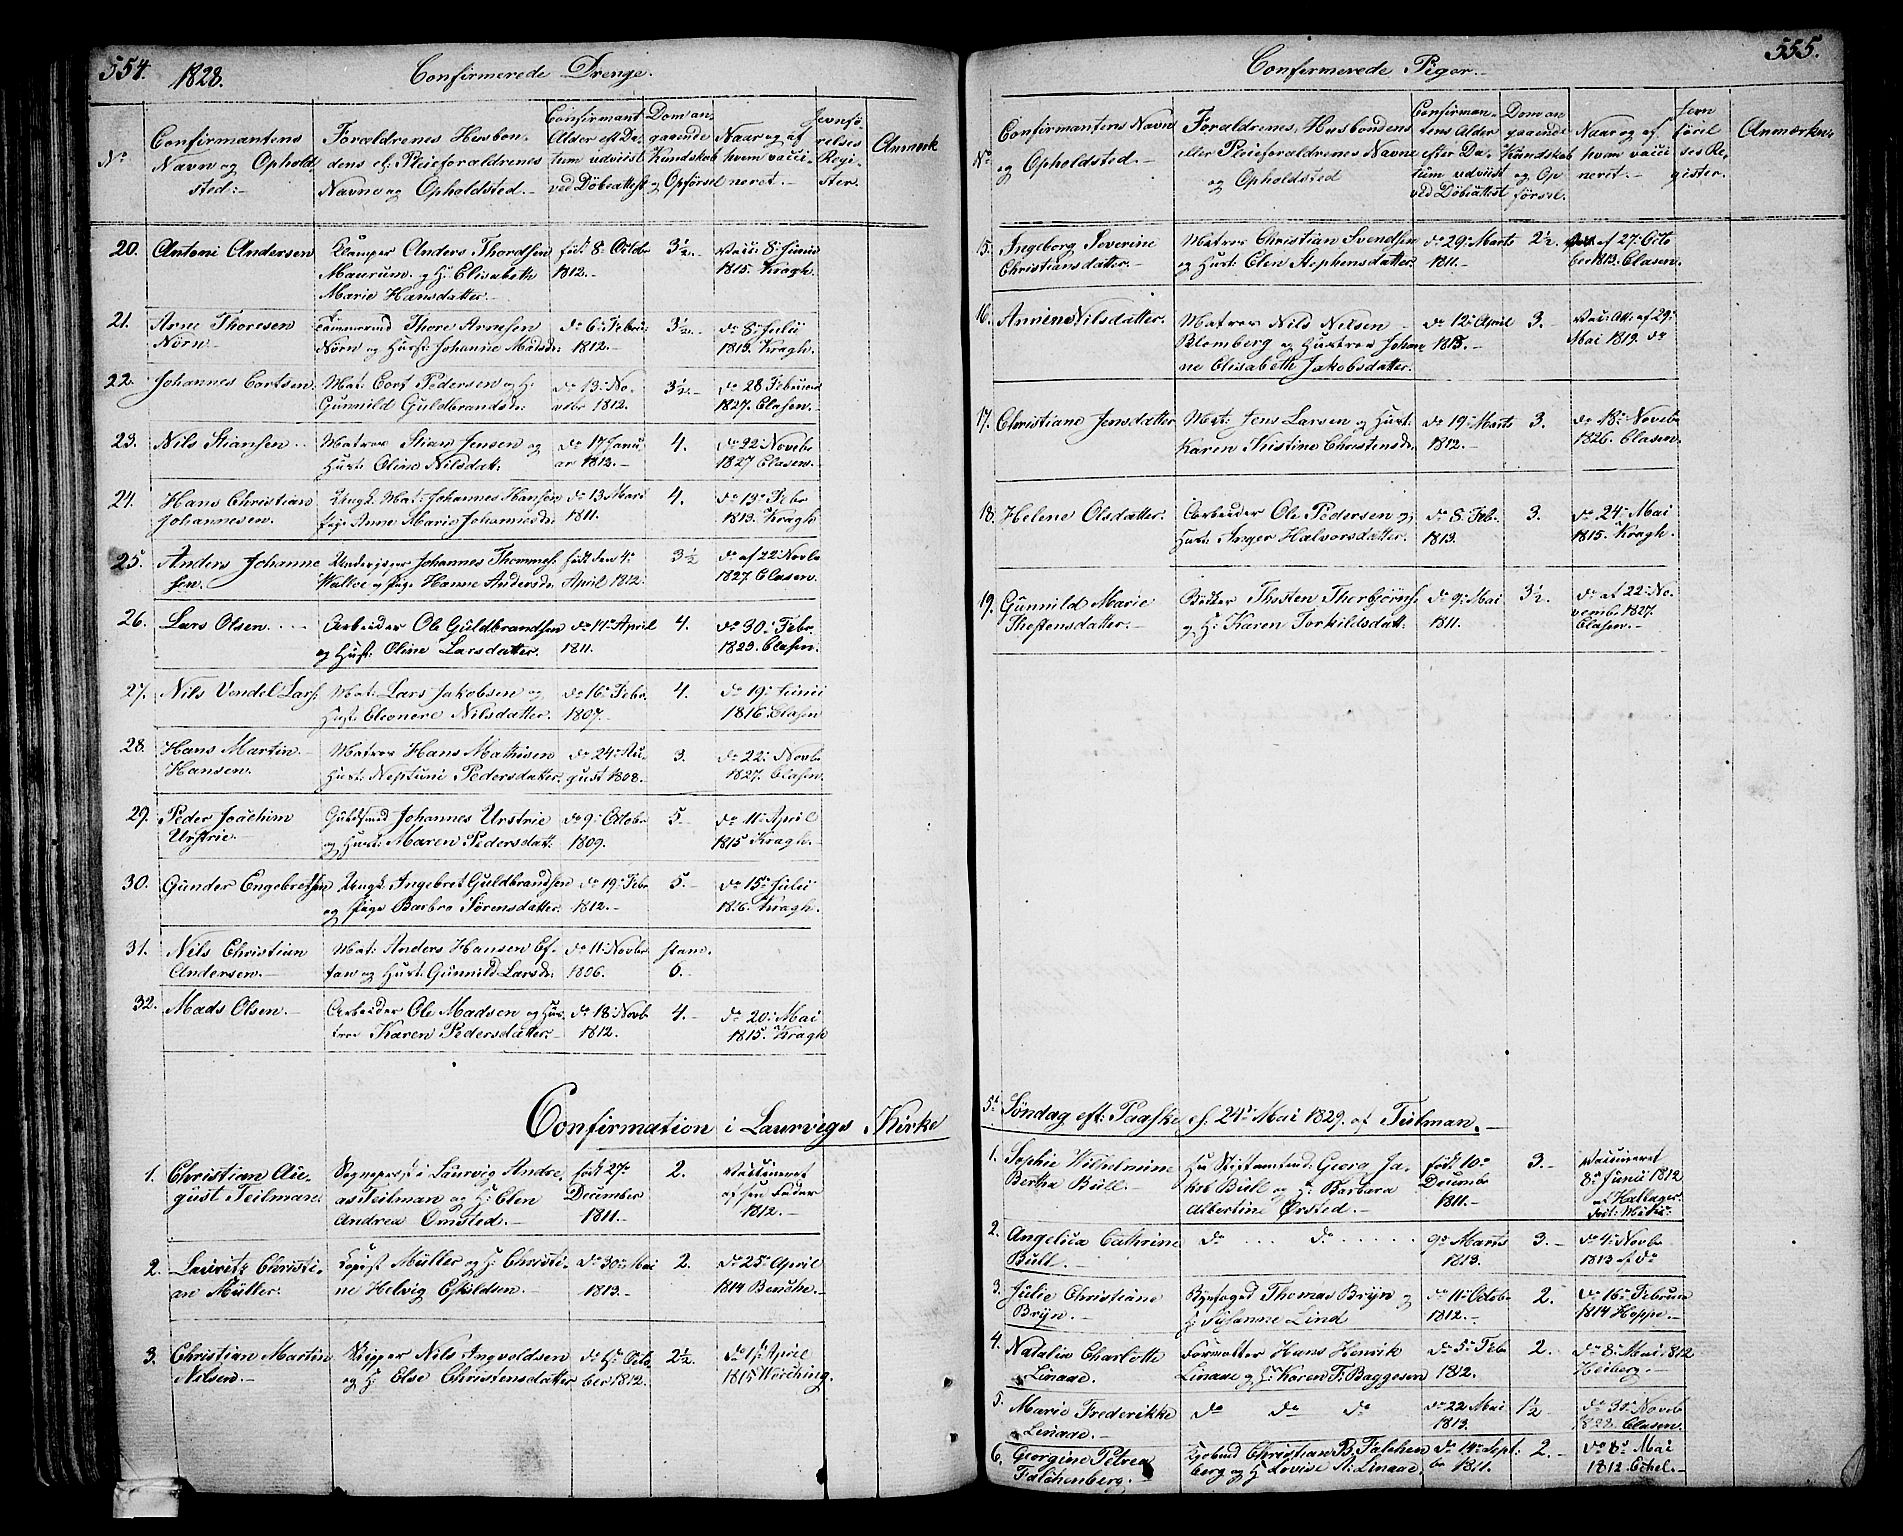 554.
1828.
Confirmerede Drenge.
No
Confirmantens
Navn og Ophold
sted:-
Foraldrenes Husbon-
dens el: Pleieforaldrenes
Navne og Opholdsted.-
Confirmant
Alder eft Da-
tum udviist
ved Döbeattest
Dom an-
gaaende
Kundskab
og Opförsel
Naar og af
hvem vacci-
neret.-
Jevnfö-
relses
Regi-
ster.
Anmærk
20. Antoni Andersen
Klamper Anders Thordsen
Maurum. og H: Elisabeth
Marie Hansdatter.-
föd: 8: Octbr
1812.-
3½.-
Vacc: 8: Junii
1815. Kragh.
21. Arne Thoresen
Nörn-
Tömmermd Thore Arnesen
Nörn og Hust: Johanne Madsd:
do 6: Febru
1812.-
3½.-
do 8: Julii
1813. Kragh.
22. Johannes Cortsen
Mat: Cort Pedersen og H:
Gunnild Guldbrandsd:
do 13: No-
vebr 1812.-
3½.-
do 28 Februar
1827. Clasen.-
23. Nils Stiansen...
Matros Stian Jensen og
Hust: Oline Nilsdat:
do 17 Janu-
ar 1812.-
4.
do 22: Novebr
1827 Clasen.
24. Hans Christian
Johannesen.
Ungk. Mat: Johannes Hansen
Pige Anne Marie Johannesd:
do 13 Mars
1811.
4.
do 13: Febr
1813. Kragh
25. Anders Johanne
sen.
Underjser Johannes Thommes:
Walloe og Pige Hanne Andersd:
födt den 4:
April 1812:
3½
do af 22: Novbr
1827 Clasen.
26. Lars Olsen....
Arbeider Ole Guldbrandsen
og Hust: Oline Larsdatter.
do 17: April
1811.
4.
do 30: Febr.
1823. Clasen.
27. Nils Vendel Lars:
Mat: Lars Jakobsen og
Hust: Eleonore Nilsdatter.
do 16: Febr.
1807.
4.
do 19: Junii
1816. Clasen
28. Hans Martin-
Hansen.
Matros Hans Mathisen
Hust: Neptuni Pedersdatter:
do 24: Au-
gust 1808.
3.
do 22: Novbr
1827. Clasen
29. Peder Joachim
Urstrie-
Guldsmd Johannes Urstrie
og Hust: Maren Pedersdatt:
do 9: Octobr
1809.
5-
do 11: April
1815 Kragh.
30. Gunder Engebretsen
Ungk. Ingebret Guldbrandsen
og Pige Barbro Sörensdatter:
do 19: Febr
1812.-
5.-
do 15: Julii
1816. Kragh.
31. Nils Christian
Andersen.-
Mat: Anders Hansen Ef-
tan og Hust: Gunnild Larsd:
do 11: Novbr
1806.
stam.
6.-
32. Mads Olsen.-
Arbeider Ole Madsen og Hus-
troe Karen Pedersdatter:-
do 18: Novb
1812.-
4.-
do 20: Mai
1815. Kragh
Confirmation i Laurvigs Kirke
1. Christian Au-
gust Teilman.
Sognepræst i Laurvig Andre-
as Teilman og H: Elen
Andrea Omsted.-
födt 27:
December
1811.-
2.
Vaccineret
af sin Fader
1812.-
2. Lauritz Christi-
an Müller.
Kopist Müller og H: Christi-
ne Helvig Eskildsen.-
do 30: Mai
1813.-
2.
do 25: April
1814 Benzke.-
3. Christian Martin
Nilsen.-
Skipper Nils Ingvoldsen
og H Else Christensdatter
do 4: Octo
ber 1812.
2½.-
do 1: April
1815 Worching.
555.
Confirmerede Piger.-
No
Confirmantens Navn
og Opholdsted.-
Foraldrenes, Husbondens
eller Pleieforaldrenes Navne
og Opholdsted
Confirman-
tens Alder
efter Da-
tum udviist
ved Döbeattest
Dom an
gaaende
Kundskab
og Op
försel.
Naar og af
hvem vacci
neret.-
Jevn
förel
ses Re-
gister.
Anmærkn:
15. Ingeborg Severine
Christiansdatter.-
Matros Christian Svendsen
og Hust: Elen Stephensdatter.
do 29: Marts
1811.-
2½.
af 27: Octo
ber 1813. Clasen.
16. Anniene Nilsdatter.
Matros Nils Nilsen-
Blomberg og Hustroe Johan
ne Elisabeth Jakobsdatter.
do 12: April
1813.-
3.-
Vac: Att. af 29:
Mai 1819. do
17. Christiane Jensdatter
Mat: Jens Larsen og Hust:
Karen Kistine Christensd:
do 19: Marts
1812.-
3.
do 18: Novebr
1826. Clasen.
18. Helene Olsdatter.
Arbeider Ole Pedersen og
Hust: Inger Halvorsdatter.
do 8: Feb.
1813.
3.
do 24: Mai
1815. Kragh.
19. Gunnild Marie
Thostensdatter.-
Bödker Thosten Thorbjörns:
og H: Karen Torkildsdatt:
do 9: Mai
1811.-
3½.
do af 22: No-
vembr 1827.
Clasen.-
5te Söndag eft: Paaske el: 24: Mai 1829. af Teilman.-
1. Sophie Wilhelmine
Bertha Bull.-
Hr Stiftamtmd: Georg Ja-
kob Bull og H: Barbara
Albertine Ørsted.-
födt 10:
Decembr
1811.-
3.-
Vaccineret
8: Junii 1812
af Hallager
2. Angelica Cathrine
Bull.-
do .... do ......
9: Marts
1813.
3.-
do 4: Novbr
1813 af do
3. Julie Christiane
Brÿn.-
Byefoged Thomas Brÿn og
H: Susanne Lind
do 11: Octobr
1812.-
2.
do 16: Februar
1814 Hoppe.
4. Natalia Charlotte
Linaae.
Formotter Hans Henrik
Linaae og H: Karen F: Baggesen
do 5: Febr
1812.
2.
do 8: Mai 1812
Heiberg.-
5. Marie Frederikke
Linaae.-
do do do
do 22 Mai
1813.
1½
do 30: Noveb
1822 Clasen.
6. Georgine Petrea
Falchenberg.-
Kjöbmd Christian B. Falchen
berg og H Lovise A. Linaae.
do 14: Sept:
br 1811.
2.-
do 8: Mai
1812. Echel.-